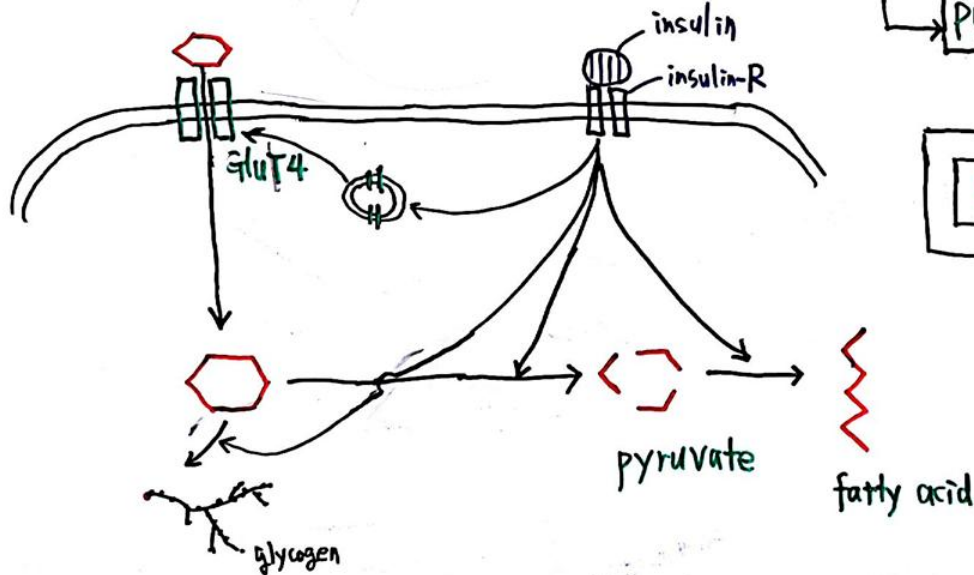 insulin
insulin-R
GluT4
pyruvate
fatty acid
glycogen